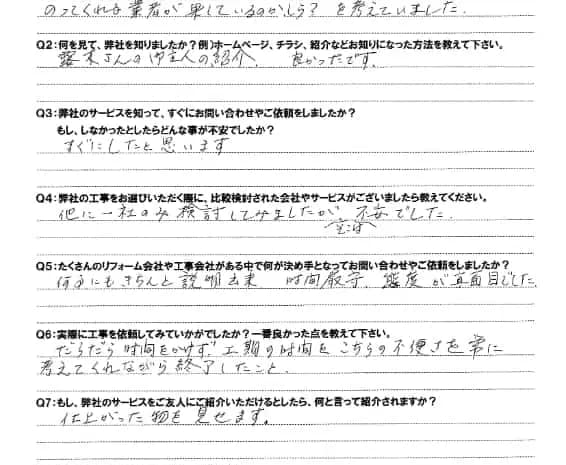 のってくれる業者が果しているのかしら？を考えていました。
Q2:何を見て、弊社を知りましたか？例）ホームページ、チラシ、紹介などお知りになった方法を教えて下さい。
さんの御主人の紹介、良かったです。
Q3:弊社のサービスを知って、すぐにお問い合わせやご依頼をしましたか？
もし、しなかったとしたらどんな事が不安でしたか？
すぐにしたと思います
Q4:弊社の工事をお選びいただく際に、比較検討された会社やサービスがございましたら教えてください。
他に一社のみ検討してみましたが、不安でした。
Q5:たくさんのリフォーム会社や工事会社がある中で何が決め手となってお問い合わせやご依頼をしましたか？
何事にもきちんと説明出来 時間厳守、態度が真面目でした
Q6:実際に工事を依頼してみていかがでしたか？一番良かった点を教えて下さい。
だらだら時間をかけず、工期の時間をこちらの不便さを常に
考えてくれながら終了したこと。
Q7:もし、弊社のサービスをご友人にご紹介いただけるとしたら、何と言って紹介されますか？
仕上がった物を見せます。